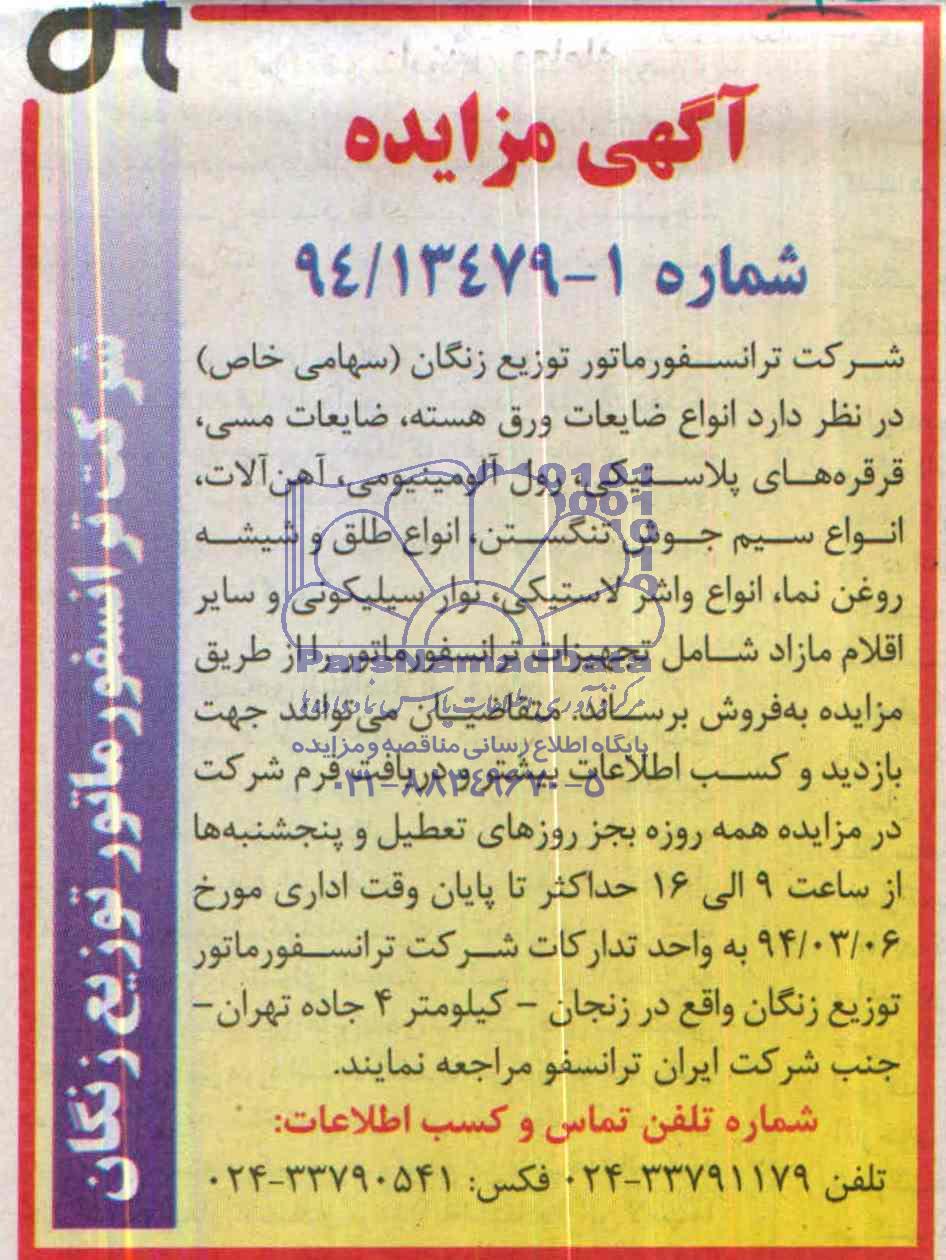 آگهی مزایده
شماره ۱-۹۴/۱۳۴۷۹
شرکت ترانسفورماتور توزیع زنگان (سهامی خاص)
در نظر دارد انواع ضایعات ورق هسته، ضایعات مسی،
قرقره‌های پلاستیکی، رول آلومینیومی، آهن‌آلات،
انواع سیم جوش تنگستن، انواع طلق و شیشه
روغن نما، انواع واشر لاستیکی، نوار سیلیکونی و سایر
اقلام مازاد شامل تجهیزات ترانسفورماتور را از طریق
مزایده به‌فروش برساند. متقاضیان می‌توانند جهت
بازدید و کسب اطلاعات بیشتر و دریافت فرم شرکت
در مزایده همه روزه بجز روزهای تعطیل و پنجشنبه‌ها
از ساعت ۹ الی ۱۶ حداکثر تا پایان وقت اداری مورخ
۹۴/۰۳/۰۶ به واحد تدارکات شرکت ترانسفورماتور
توزیع زنگان واقع در زنجان – کیلومتر ۴ جاده تهران–
جنب شرکت ایران ترانسفو مراجعه نمایند.
شماره تلفن تماس و کسب اطلاعات:
تلفن ۳۳۷۹۱۱۷۹-۰۲۴ فکس: ۳۳۷۹۰۵۴۱-۰۲۴
شرکت ترانسفورماتور توزیع زنگان
ParsNamadData
پایگاه اطلاع رسانی مناقصه و مزایده
۰۲۱-۸۸۳۴۹۶۷۰-۵